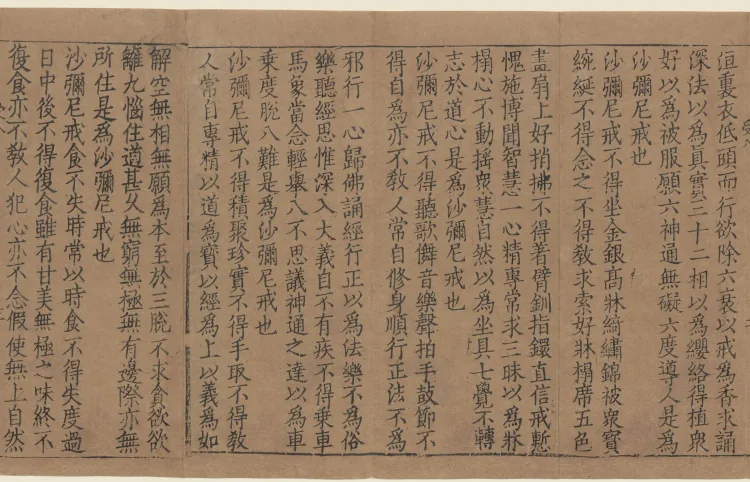 洹重衣低頭而行欲除六衰以戒為香求誦
深法以為真寶三十二相以為纓絡得植衆
好以為被服願六神通無礙六度導人是為
沙彌尼戒也
沙彌尼戒不得坐金銀髙牀綺繡錦被衆寶
綩綖不得念之不得教求索好牀榻席五色
畫扇上好捎拂不得着臂釧指鐶直信戒慙
愧施博聞智慧一心精專常求三昧以為牀
榻心不動搖衆慧自然以為坐具七覺不轉
志於道心是為沙彌尼戒也
沙彌尼戒不得聽歌儛音樂聲拍手鼓節不
得自為亦不教人常自修身順行正法不為
邪行一心歸佛誦經行正以為法樂不為俗
樂聽經思惟深入大義自不有疾不得乗車
馬象當念輕舉八不思議神通之達以為車
乗度脫八難是為沙彌尼戒也
沙彌尼戒不得積聚珍寶不得手取不得教
人常自專精以道為寶以經為上以義為如
解空無相無願為本至於三脫不求貪欲欲
離九惱住道甚久無窮無極無有邊際亦無
所住是為沙彌尼戒也
沙彌尼戒食不失時常以時食不得失度過
日中後不得復食雖有甘美無極之味終不
復食亦不教人犯心亦不念假使無上自然